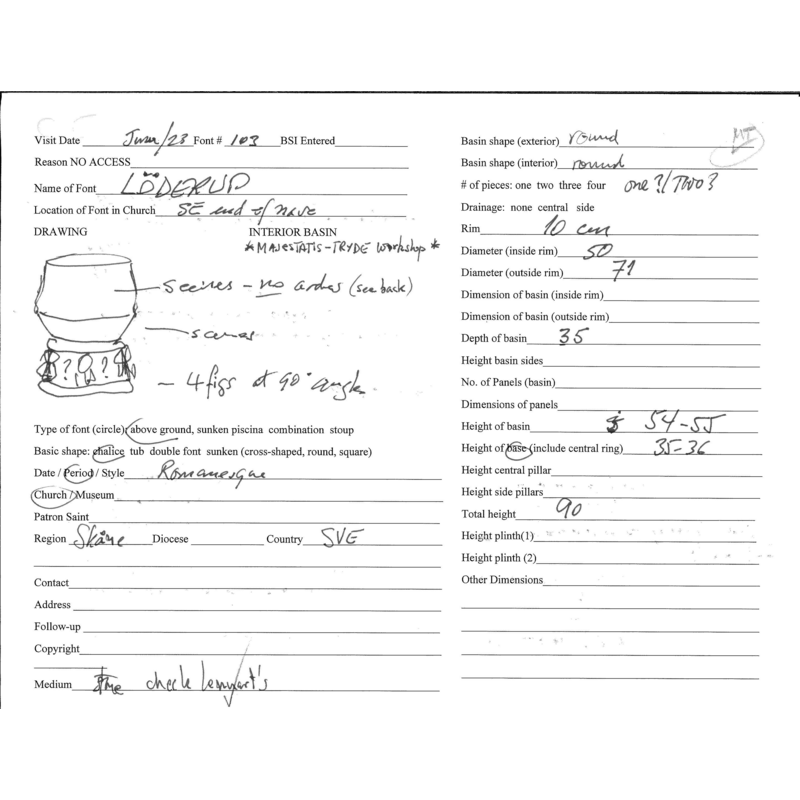 Visit Date June/23 Font # 103 BSI Entered
Reason NO ACCESS
Name of Font LÖDERUP
Location of Font in Church SE end of nave
DRAWING INTERIOR BASIN
*MAJESTATIS-TRYDE Workshop *
Scenes - no arches (see back)
scenes
? ?
~ 4 figs at 90° angle
Type of font (circle): above ground, sunken piscina combination stoup
Basic shape: chalice tub double font sunken (cross-shaped, round, square)
Date / Period / Style Romanesque
Church / Museum
Patron Saint
Region Skåne Diocese Country SVE
Contact
Address
Follow-up
Copyright
Medium check
Basin shape (exterior) round
MT
Basin shape (interior) round
# of pieces: one two three four one?/TWO?
Drainage: none central side
Rim 10 cm
Diameter (inside rim) 50
Diameter (outside rim) 71
Dimension of basin (inside rim)
Dimension of basin (outside rim)
Depth of basin 35
Height basin sides
No. of Panels (basin)
Dimensions of panels
Height of basin 54-55
Height of base (include central ring) 35-36
Height central pillar
Height side pillars
Total height 90
Height plinth(1)
Height plinth (2)
Other Dimensions